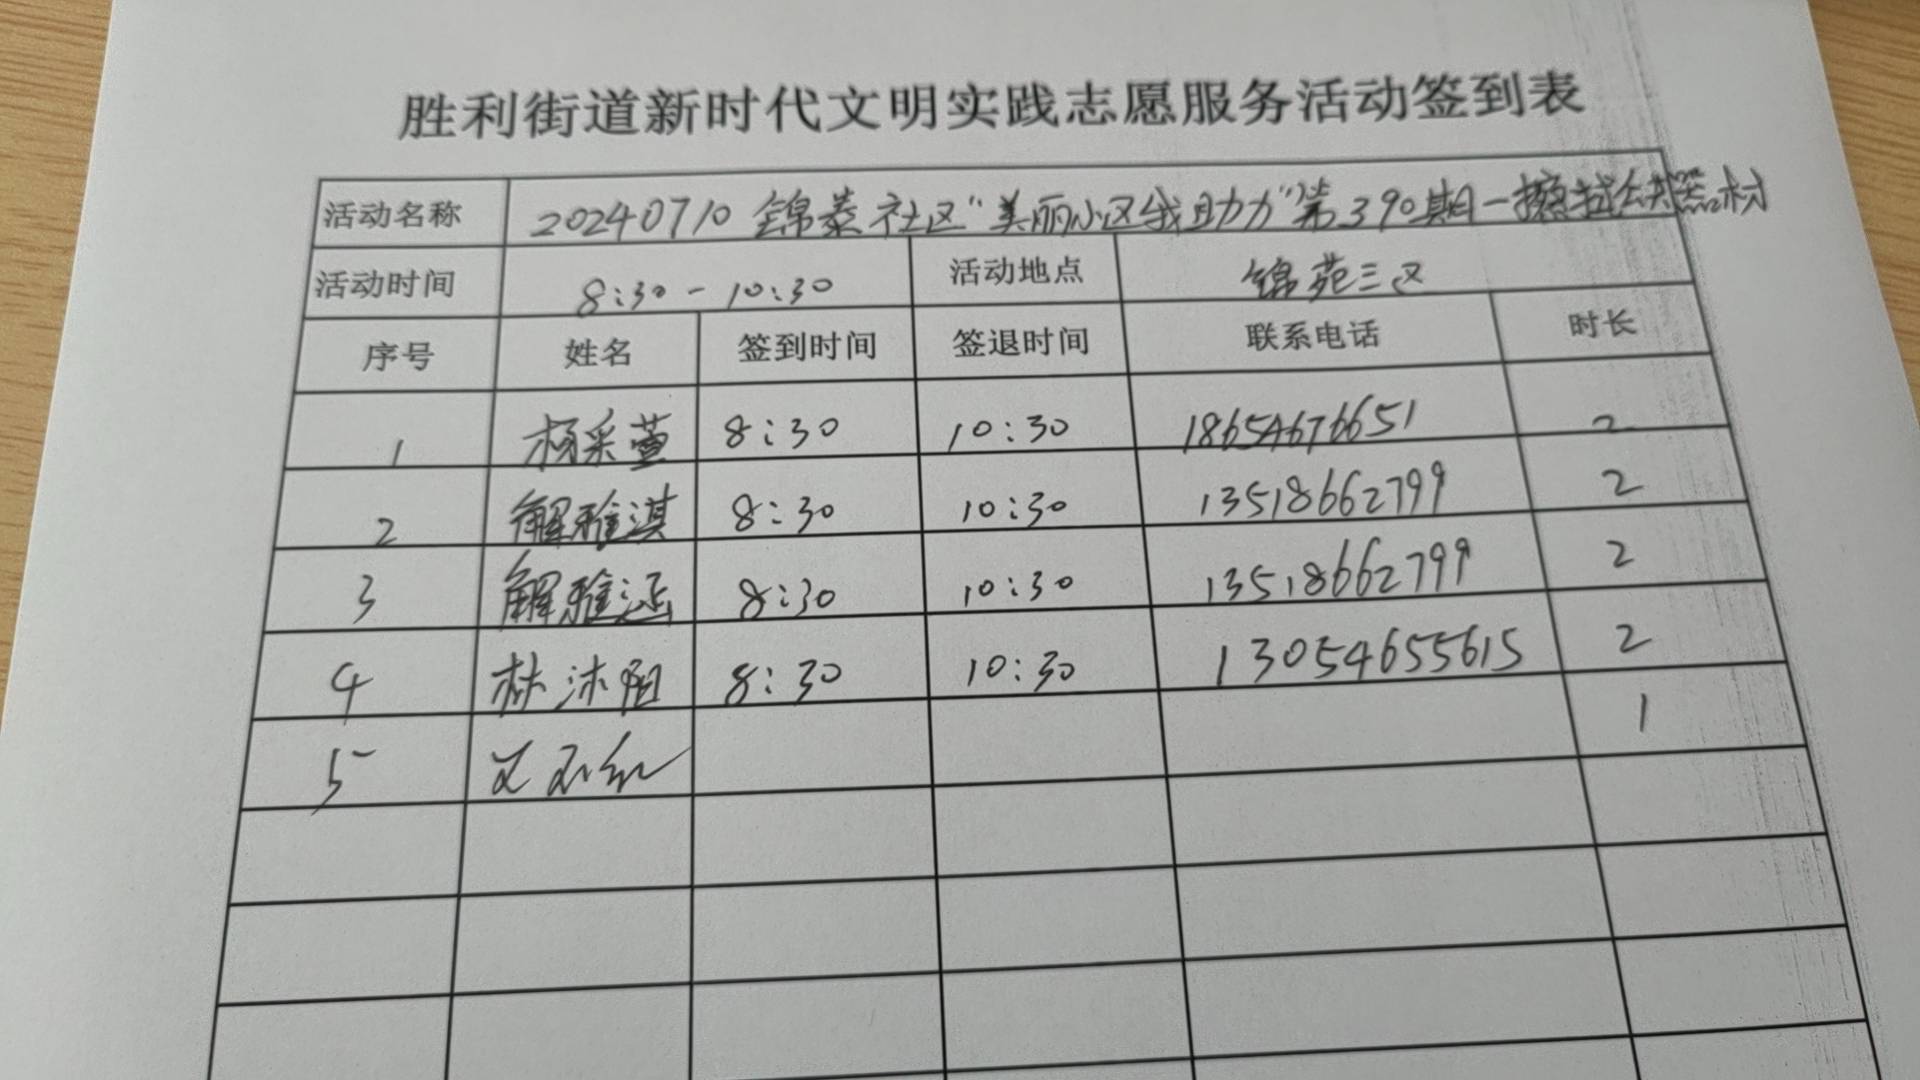 胜利街道新时代文明实践志愿服务活动签到表
活动名称 20240710 锦泰社区“美丽小区我助力”第390期一擦拭公共器材
活动时间 8:30-10:30 活动地点 锦苑三区
序号 姓名 签到时间 签退时间 联系电话 时长
1 杨采萱 8:30 10:30 18654676651 2
2 解雅淇 8:30 10:30 13518662799 2
3 解雅涵 8:30 10:30 13518662799 2
4 林沐阳 8:30 10:30 13054655615 2
5 1